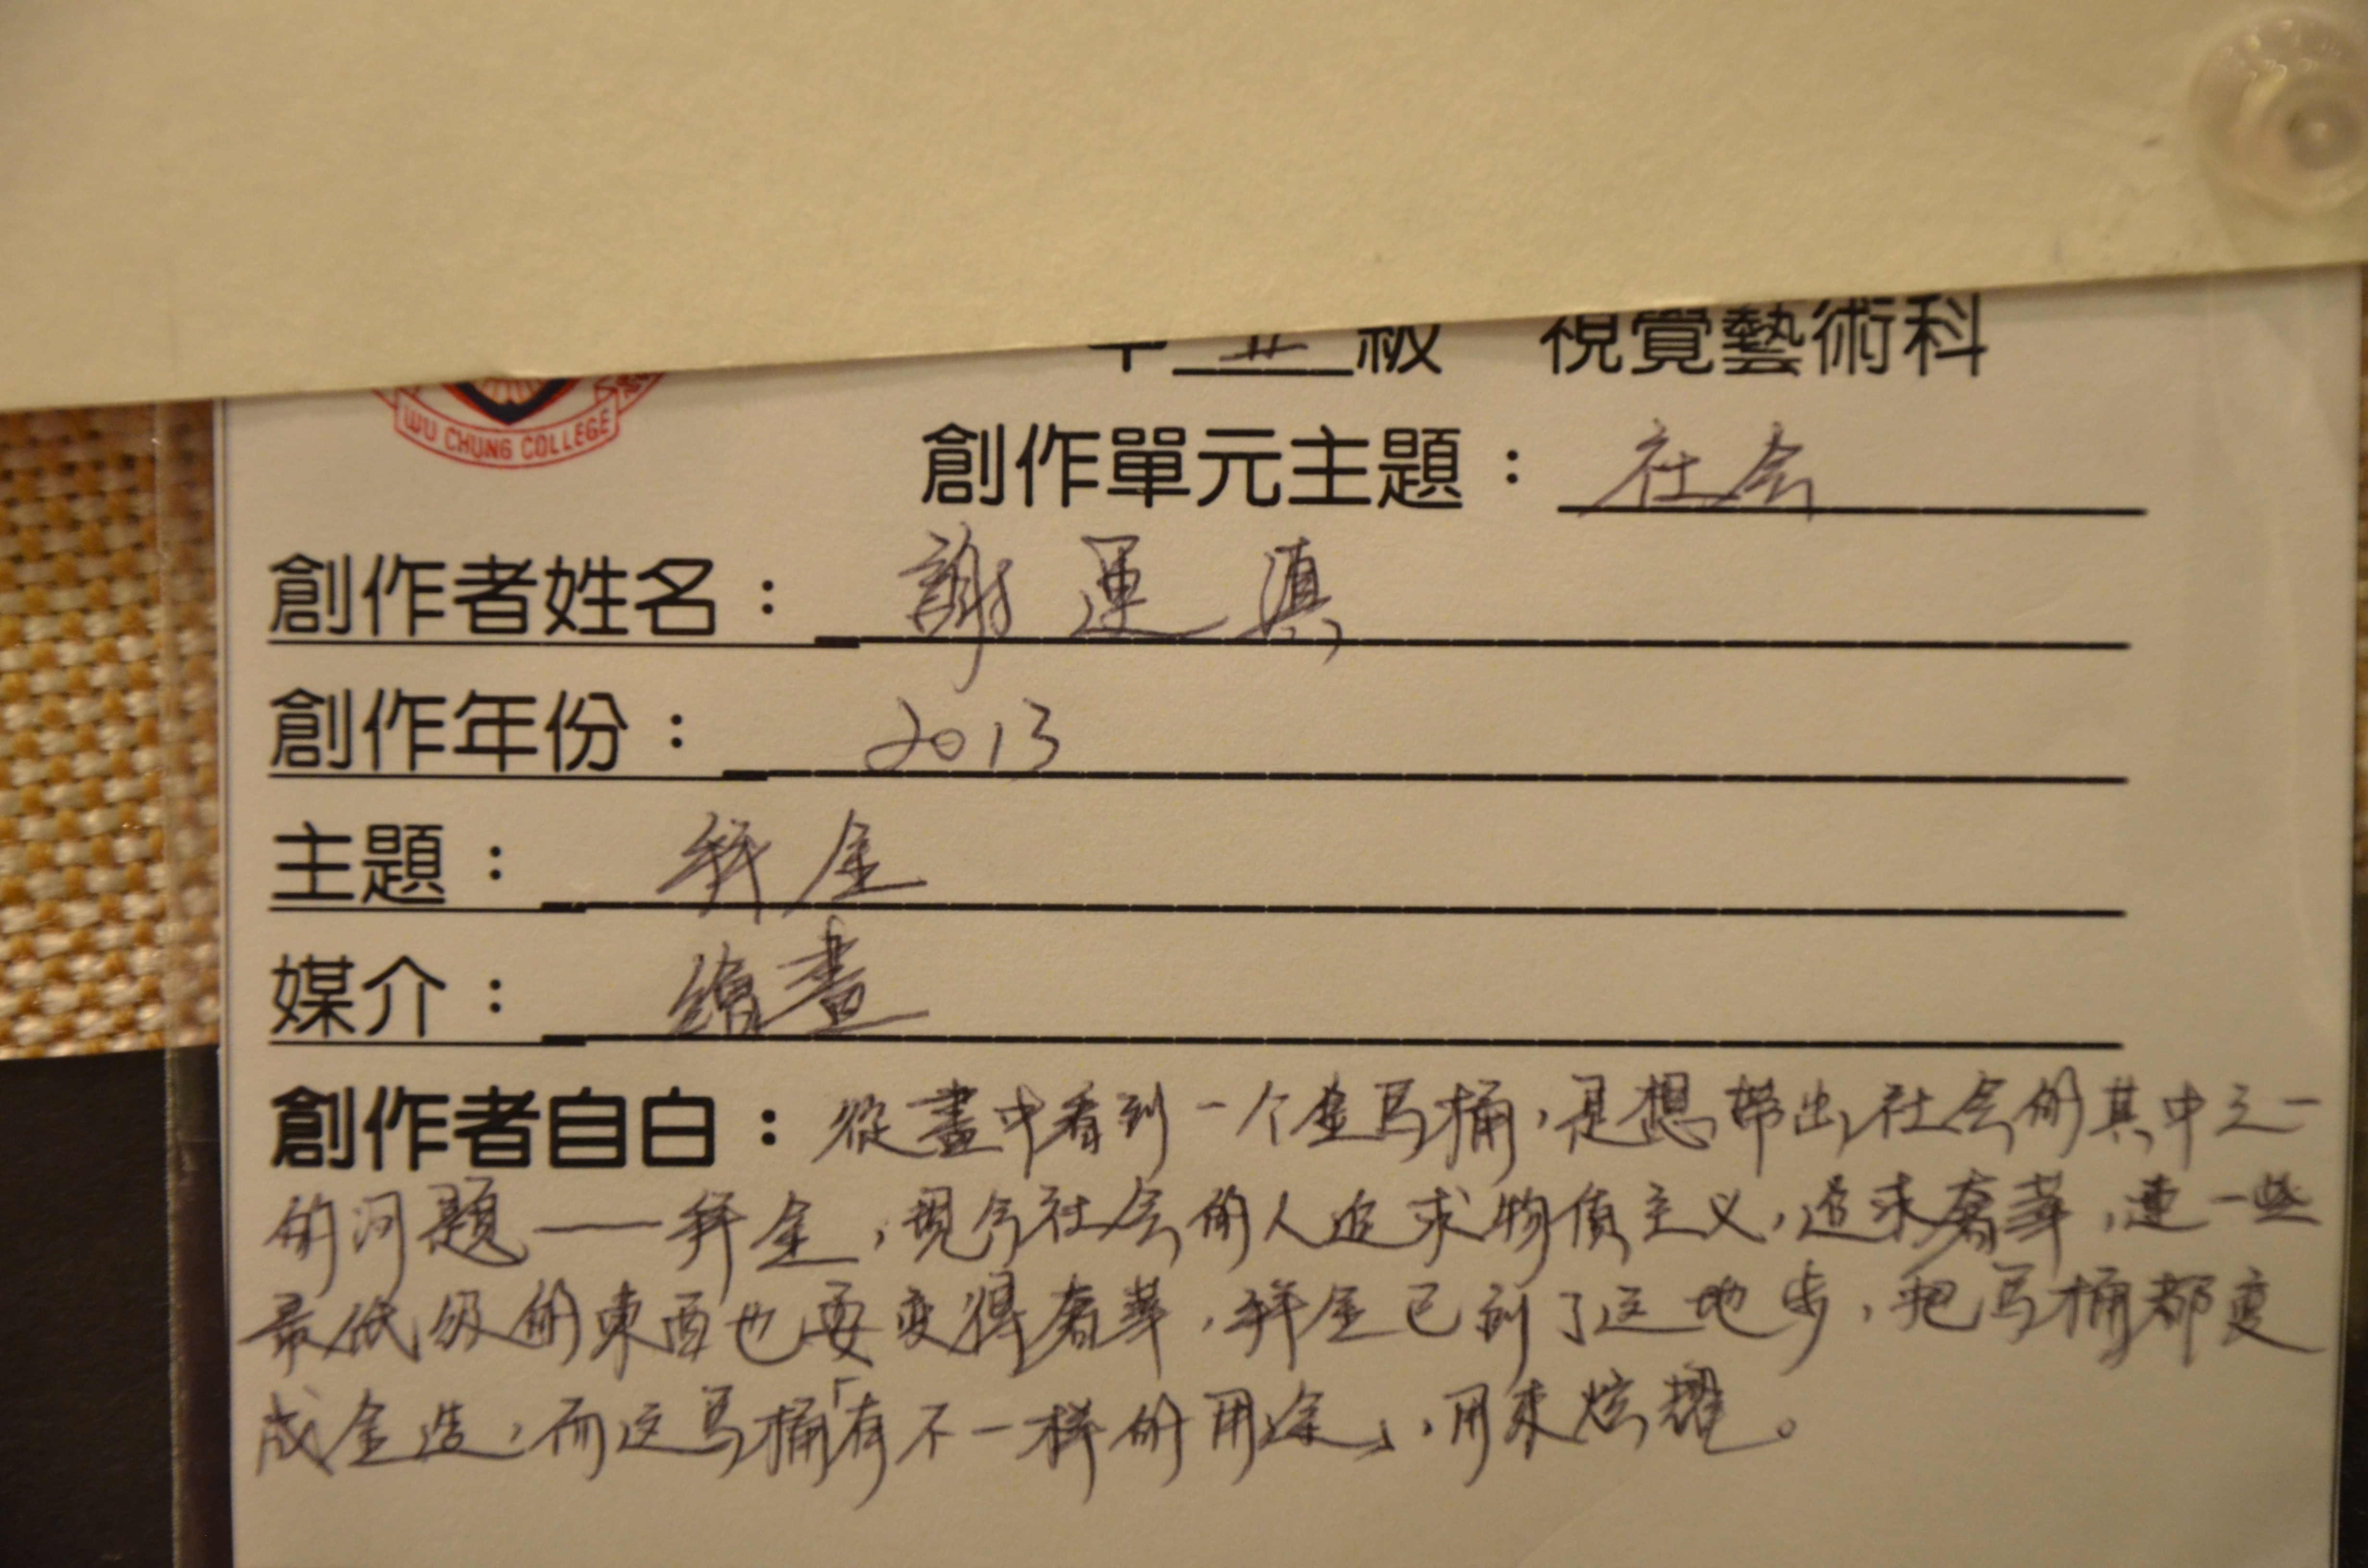 中五級 視覺藝術科
WU CHUNG COLLEGE
創作單元主題：社会
創作者姓名：謝運滇
創作年份：2013
主題：拜金
媒介：繪畫
創作者自白：從畫中看到一个金馬桶，是想帶出社会的其中之一
的问題——拜金，現今社会的人追求物質主义，追求奢華，連一些
最低级的東西也要变得奢華，拜金已到了这地步，把马桶都变
成金造，而这马桶「有不一样的用途」，用來炫耀。